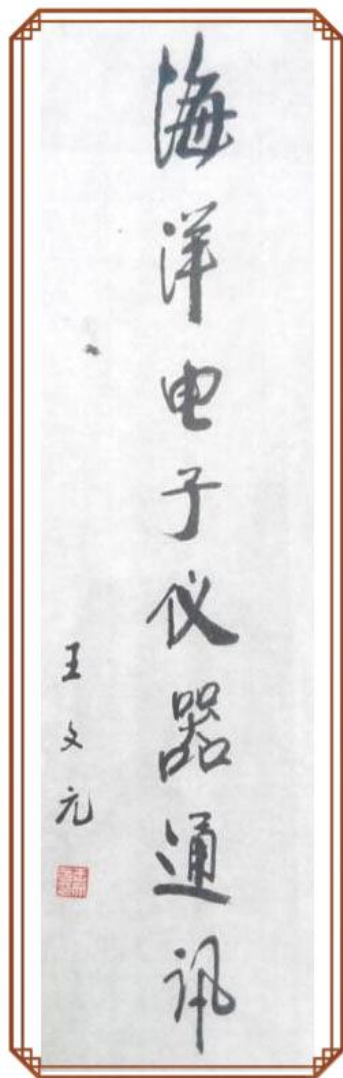 海洋电子仪器通讯
王文元